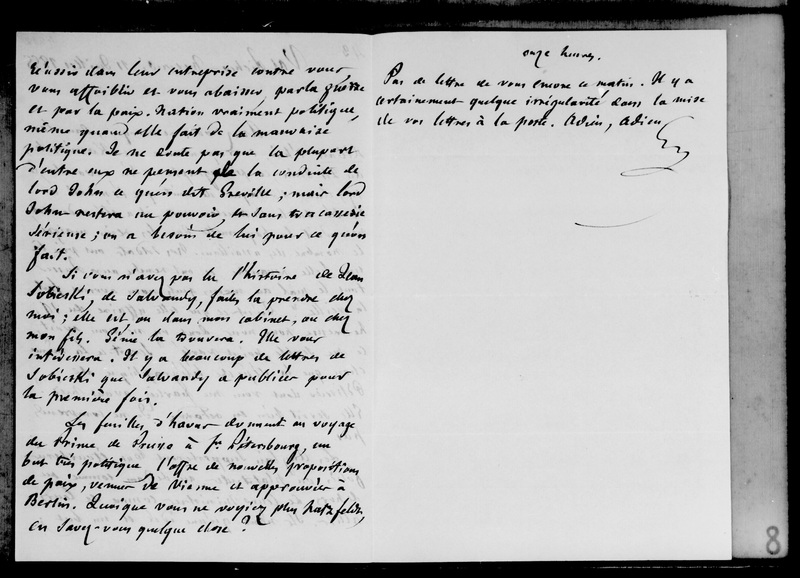 réussir dans leur entreprise contre vous,
vous affaiblir et vous abaisser par la guerre
et par la paix. Nation vraiment politique,
même quand elle fait de la mauvaise
politique. Je ne doute pas que la plupart
d'entre eux ne pensent de la conduite de
lord John ce qu'en dit Greville ; mais lord
John restera au pouvoir, et sans tracasserie
sérieuse ; on a besoin de lui pour ce qu'on
fait.
Si vous n'avez pas lu l'histoire de Jean
Sobieski, de Salvandy, faites la prendre chez
moi ; elle est ou dans mon cabinet, ou chez
mon fils. Génie la trouvera. Elle vous
intéressera. Il y a beaucoup de lettres de
Sobieski que Salvandy a publiées pour
la première fois.
Les feuilles d'havas donnent au voyage
du Prince de Prusse à St Pétersbourg, un
but très politique, l'offre de nouvelles propositions
de paix, venues de Vienne et approuvées à
Berlin. Quoique vous ne voyiez plus Hatzfeldt,
en savez-vous quelque chose ?
onze heures.
Pas de lettre de vous encore ce matin. Il y a
certainement quelque irrégularité dans la mise
de vos lettres à la poste. Adieu, Adieu
8